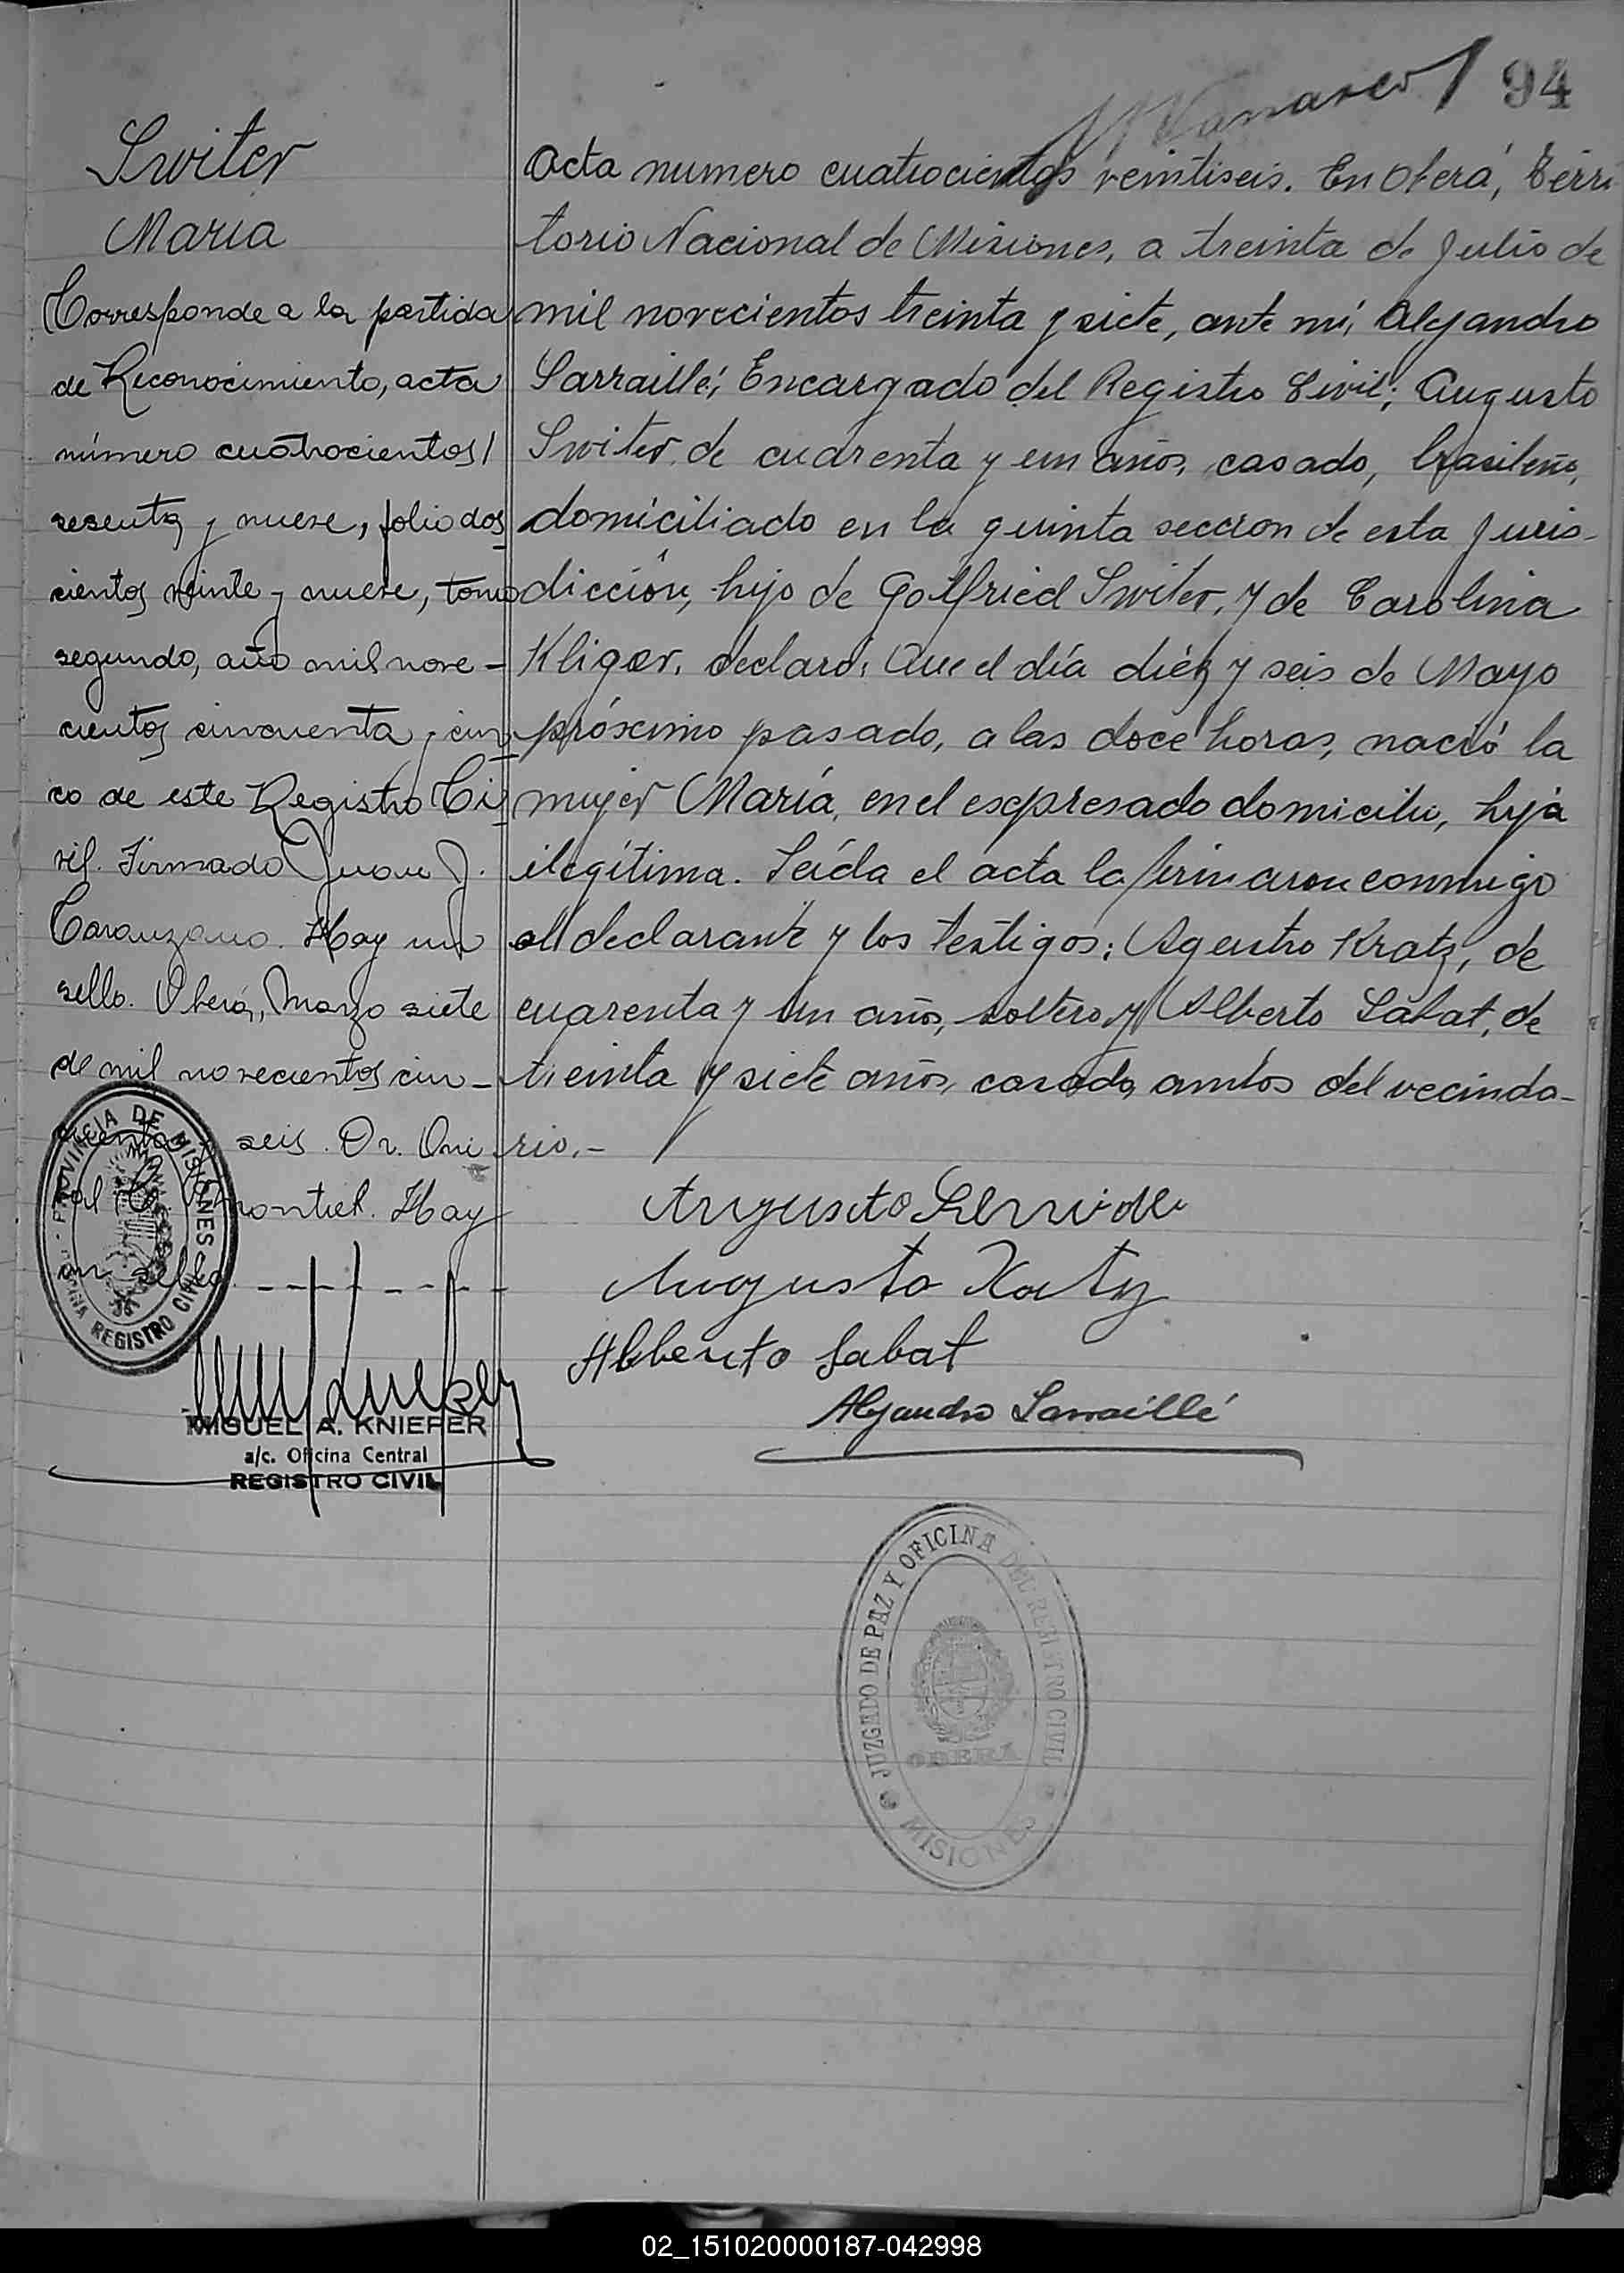 94
Switer
Maria
Corresponde a la partida
de Reconocimiento, acta
número cuatrocientos
sesenta y nueve, folio dos
cientos veinte y nueve, tomo
segundo, año mil nove-
cientos cincuenta y cin-
co de este Registro Ci-
vil. Firmado Juan J.
Caranzano. Hay un
sello. Oberá, Marzo siete
de mil novecientos cin-
cuenta y seis. Dr.
Montiel. Hay
un sello.
PROVINCIA DE MISIONES
REGISTRO CIVIL
MIGUEL A. KNIEFER
a/c. Oficina Central
REGISTRO CIVIL
Acta numero cuatrocientos veintiseis. En Oberá, Terri
torio Nacional de Misiones, a treinta de Julio de
mil novecientos treinta y siete, ante mí, Alejandro
Sarraillé, Encargado del Registro Civil; Augusto
Switer, de cuarenta y un años, casado, brasileño,
domiciliado en la quinta seccion de esta Juris-
dicción, hijo de Gotfried Switer, y de Carolina
Kliger, declaró: Que el día diéz y seis de Mayo
próximo pasado, a las doce horas, nació la
mujer María, en el esxpresado domicilio, hija
ilegítima. Leída el acta la firmaron conmigo
el declarante y los testigos: Agustro Kratz, de
cuarenta y un años, soltero y Alberto Sabat, de
treinta y siete años, casado, ambos del vecinda-
rio.-
Augusto
Augusto Katz
Alberto Sabat
Alejandro Sarraillé
JUZGADO DE PAZ Y OFICINA DEL REGISTRO CIVIL
OBERA
MISIONES
02_151020000187-042998